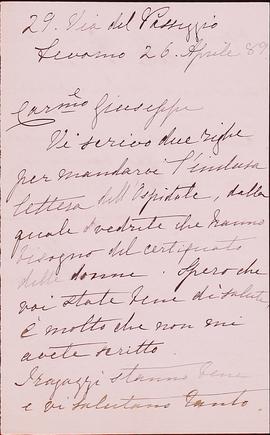 29. Via del Passeggio
Livorno 26. Aprile 89
Carmo Giuseppe
Vi scrivo due righe
per mandarvi l'inclusa
lettera dell'Ospitale, dalla
quale vedrete che hanno
bisogno del certificato
delle donne. Spero che
voi state bene di salute,
è molto che non mi
avete scritto.
I ragazzi stanno bene
e vi salutano tanto.